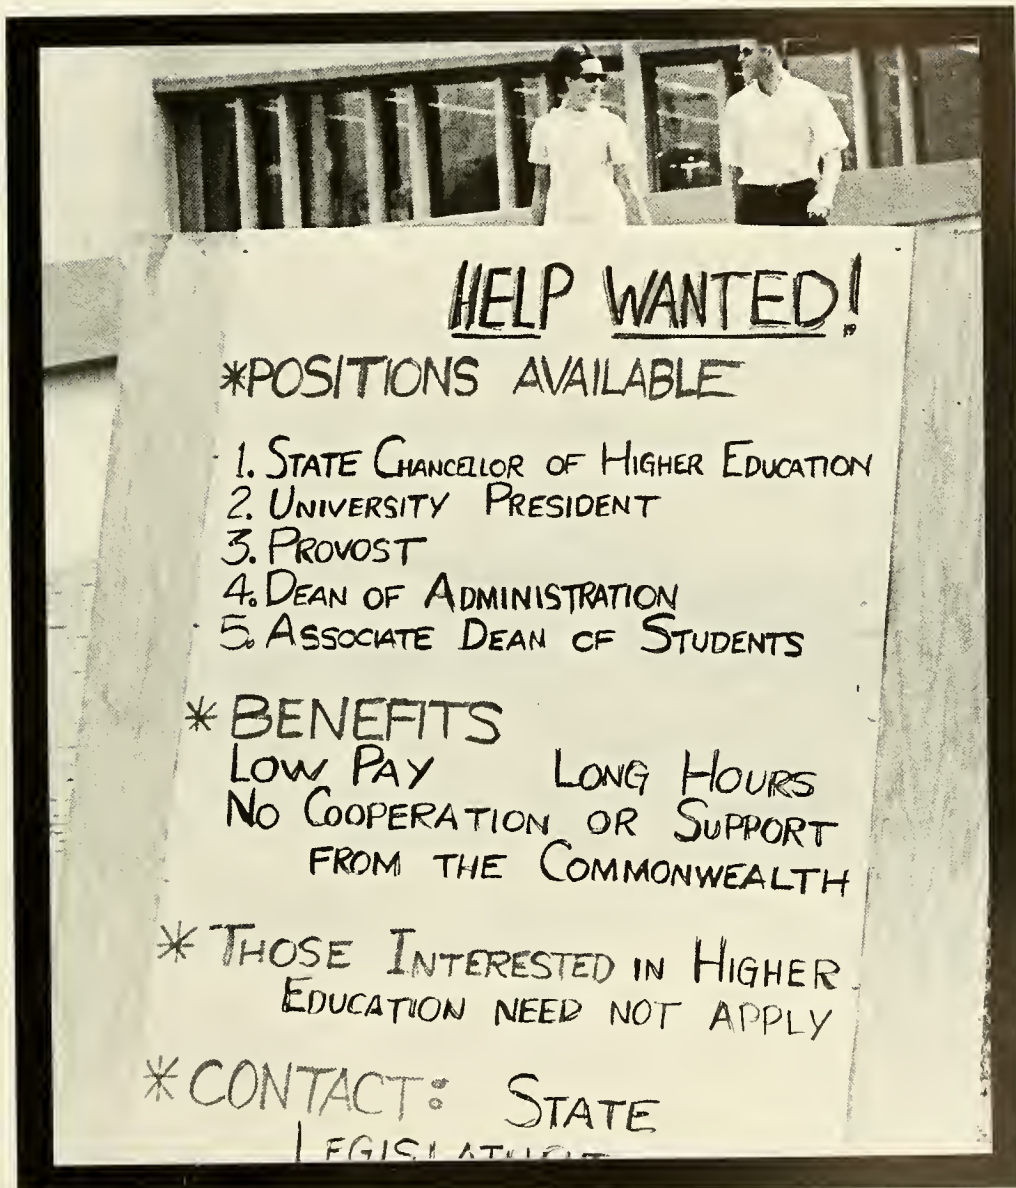 HELP WANTED!
*POSITIONS AVAILABLE
1. STATE CHANCELLOR OF HIGHER EDUCATION
2. UNIVERSITY PRESIDENT
3. PROVOST
4. DEAN OF ADMINISTRATION
5. ASSOCIATE DEAN OF STUDENTS
* BENEFITS
LOW PAY LONG HOURS
NO COOPERATION OR SUPPORT
FROM THE COMMONWEALTH
* THOSE INTERESTED IN HIGHER
EDUCATION NEED NOT APPLY
*CONTACT: STATE